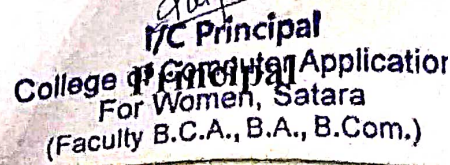 I/C Principal
College of Computer Application
Principal
For Women, Satara
(Faculty B.C.A., B.A., B.Com.)